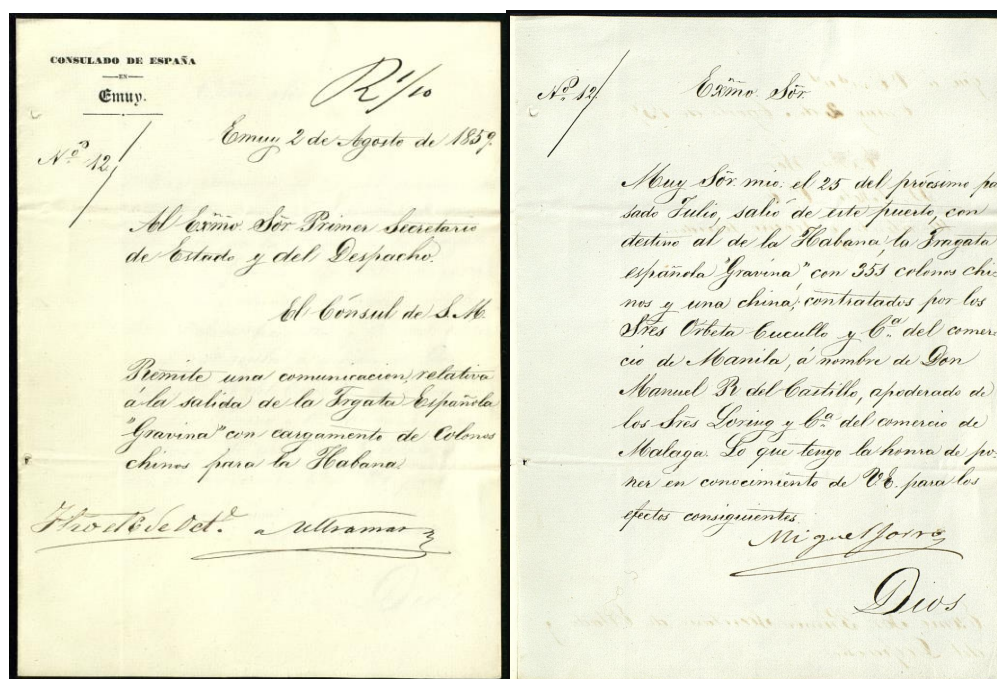 CONSULADO DE ESPAÑA
EN
Emuy.
R 1/10
Emuy 2 de Agosto de 1859.
Nº 12
Al Exmo. Sor Primer Secretario
de Estado y del Despacho.
El Cónsul de S. M.
Remite una comunicacion, relativa
á la salida de la Frgata Española
"Gravina" con cargamento de Colonos
chinos para la Habana.
de Octe. a Ultramar
Nº 12
Exmo. Sor.
Muy Sor. mio: el 25 del prócsimo pa
sado Julio, salió de este puerto, con
destino al de la Habana, la Fragata
española "Gravina", con 351 colonos chi-
nos y una china; contratados por los
Sres Orbeta Cucullo y Ca. del comer-
cio de Manila, á nombre de Don
Manuel R del Castillo, apoderado de
los Sres Loring y Ca. del comercio de
Malaga. Lo que tengo la honra de po-
ner en conocimiento de V.E. para los
efectos consiguientes.
Miguel Jorro
Dios